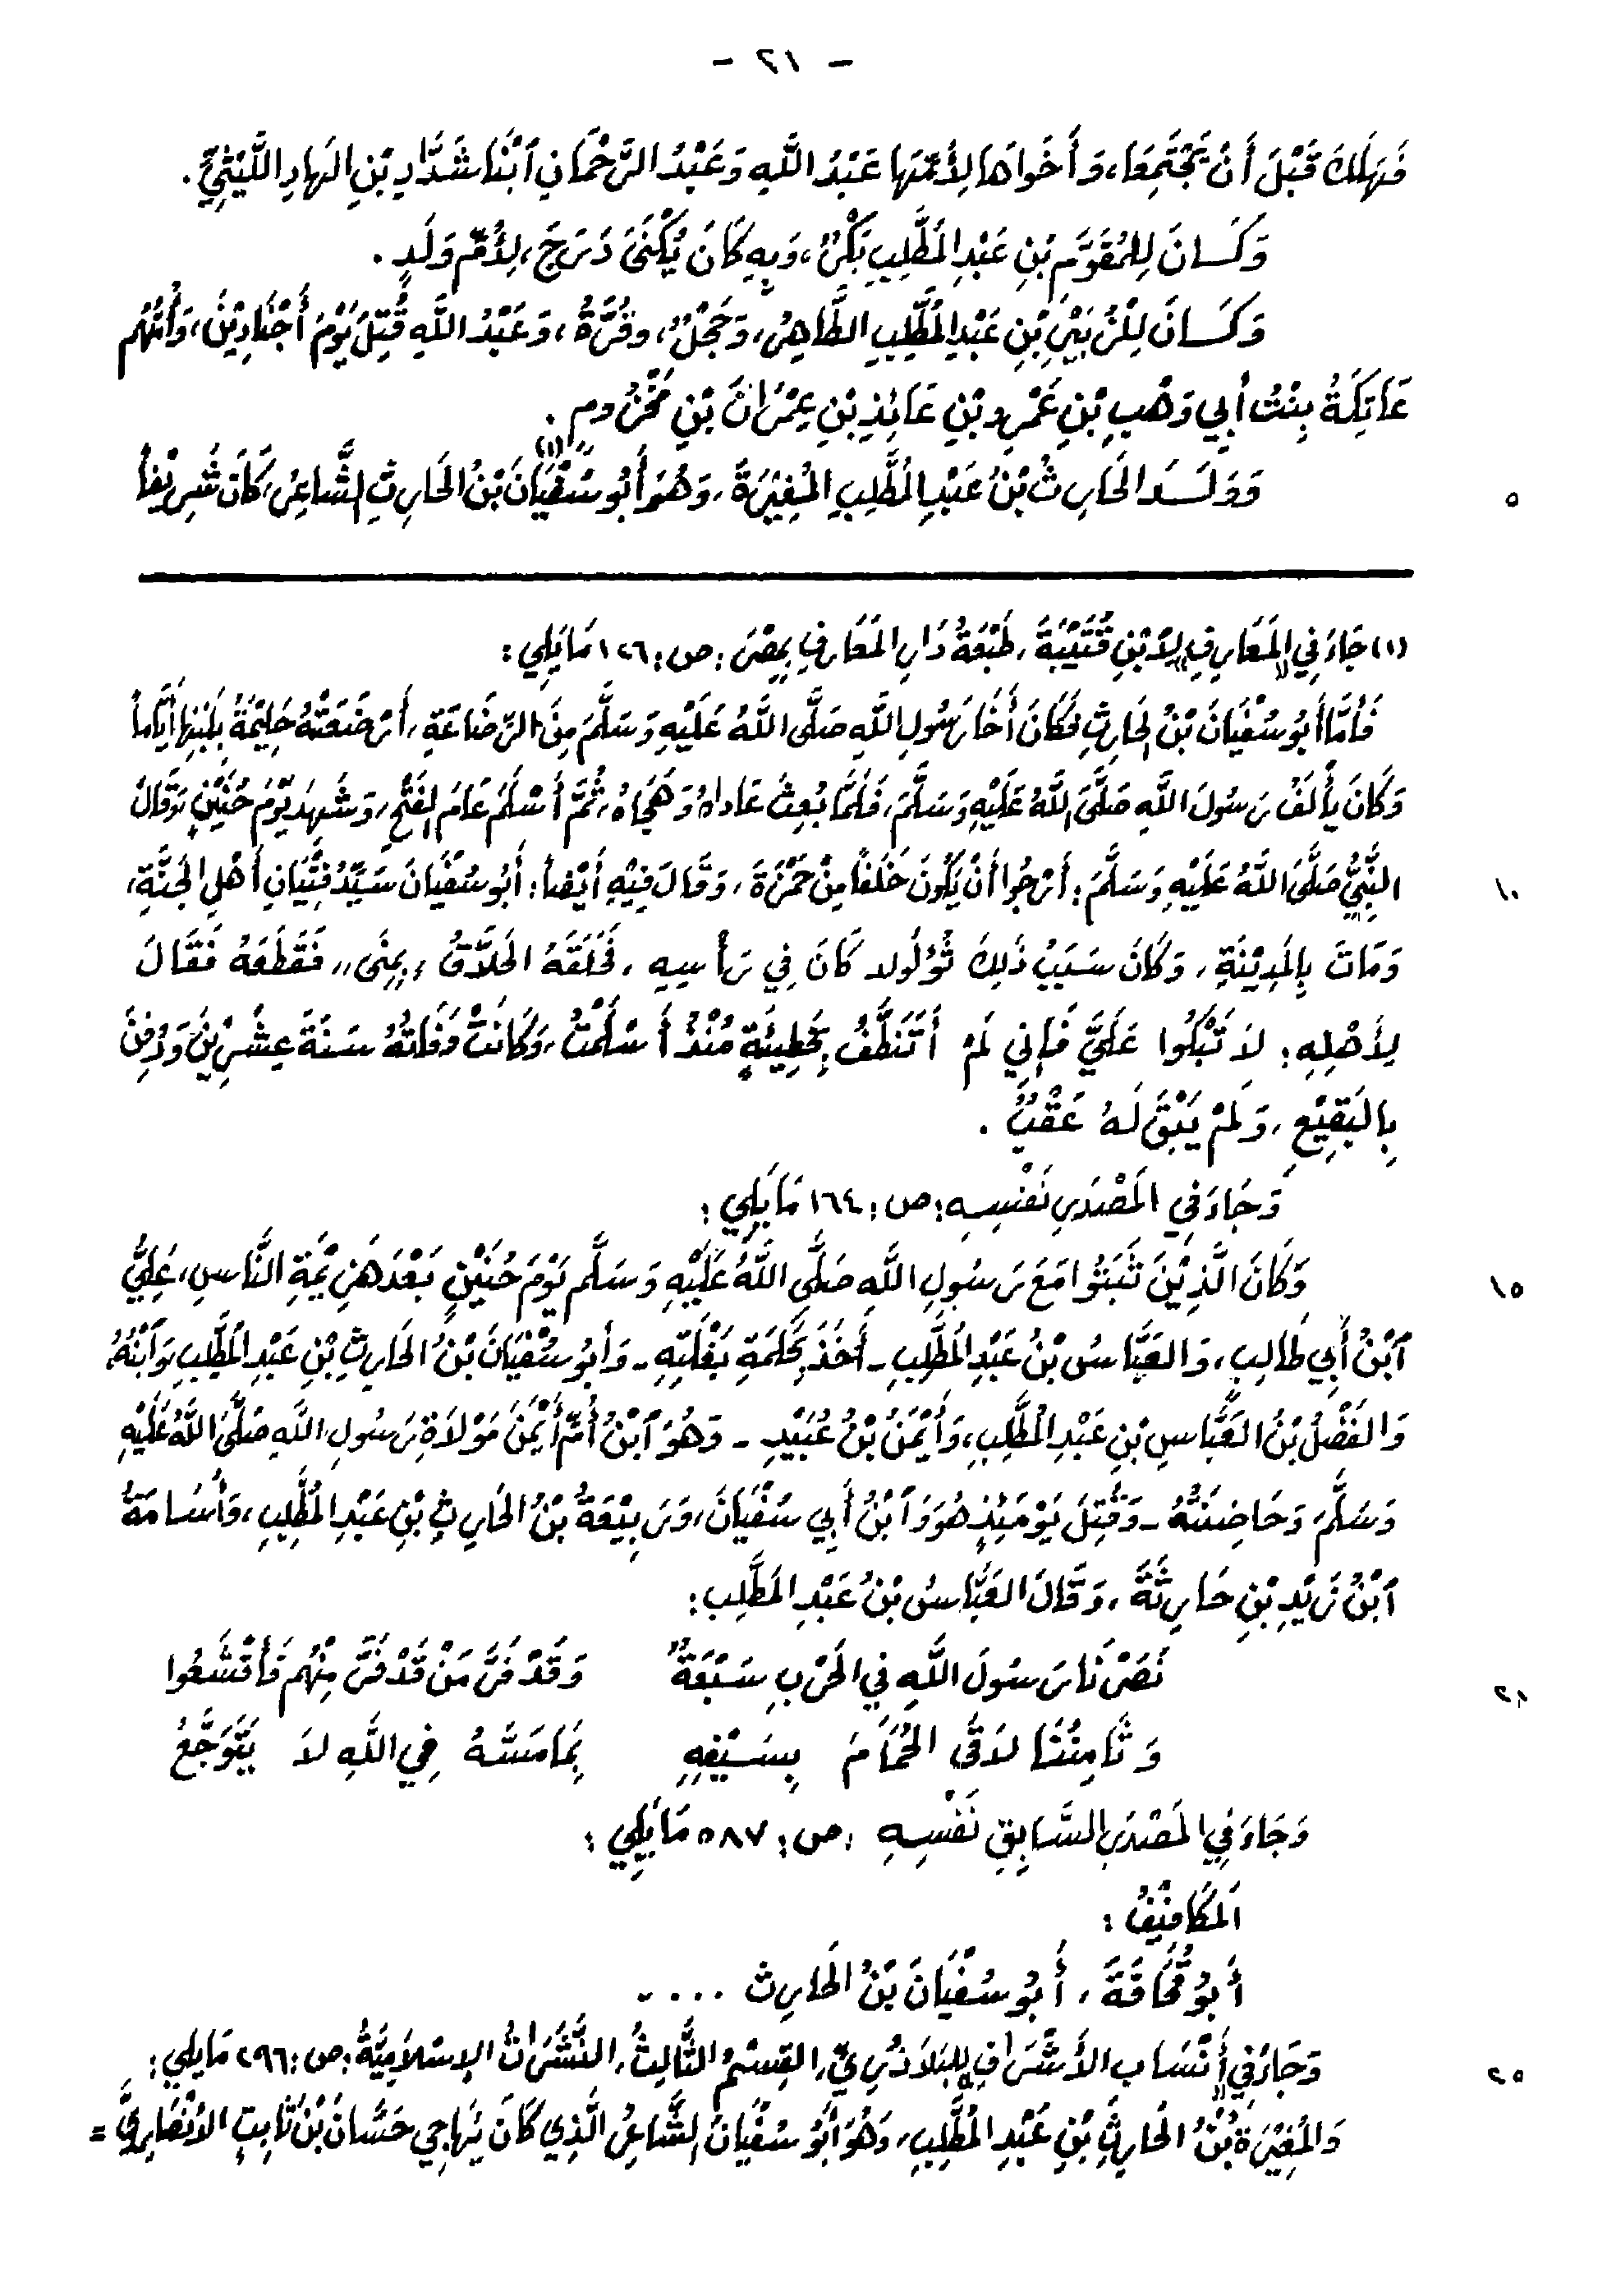 - ٢١ -
فَهَلَكَ قَبْلَ أَنْ يَجْتَمِعَا، وَأَخَوَاهَا لِأُمِّهَا عَبْدُ اللَّهِ وَعَبْدُ الرَّحْمَانِ ٱبْنَا شَدَّادِ بْنِ الهَادِ اللَّيْثِيِّ.
وَكَانَ لِلمُقَوَّمِ بْنِ عَبْدِ المُطَّلِبِ بَكْرٌ، وَبِهِ كَانَ يُكْنَى دَرَجَ، لِأُمِّ وَلَدٍ.
وَكَانَ لِلزُّبَيْرِ بْنِ عَبْدِ المُطَّلِبِ الطَّاهِرُ، وَحَجْلٌ، وقُرَّةُ، وَعَبْدُ اللَّهِ قُتِلَ يَوْمَ أَجْنَادِيْنَ، وَأُمُّهُم
عَاتِكَةُ بِنْتُ أَبِي وَهْبِ بْنِ عَمْرِو بْنِ عَائِذِ بْنِ عِمْرَانَ بْنِ مَخْزُومٍ.
وَوَلَدَ الحَارِثُ بْنُ عَبْدِ المُطَّلِبِ المُغِيْرَةَ، وَهُوَ أَبُو سُفْيَانَ (١) بْنُ الحَارِثِ الشَّاعِرُ، كَانَ شَرِيْفاً
٥
(١) جَاءَ فِي "المَعَارِفِ" لِابْنِ قُتَيْبَةَ، طَبْعَةُ دَارِ المَعَارِفِ بِمِصْرَ: ص: ١٢٦ مَا يَلِي:
فَأَمَّا أَبُو سُفْيَانَ بْنُ الحَارِثِ فَكَانَ أَخَا رَسُولِ اللَّهِ صَلَّى اللَّهُ عَلَيْهِ وَسَلَّمَ مِنَ الرَّضَاعَةِ، أَرْضَعَتْهُ حَلِيْمَةُ بِلَبَنِهَا أَيَّاماً
وَكَانَ يَأْلَفُ رَسُولَ اللَّهِ صَلَّى اللَّهُ عَلَيْهِ وَسَلَّمَ، فَلَمَّا بُعِثَ عَادَاهُ وَهَجَاهُ، ثُمَّ أَسْلَمَ عَامَ الفَتْحِ، وَشَهِدَ يَوْمَ حُنَيْنٍ وَقَالَ
النَّبِيُّ صَلَّى اللَّهُ عَلَيْهِ وَسَلَّمَ: أَرْجُوا أَنْ يَكُونَ خَلَفاً مِنْ حَمْزَةَ، وَقَالَ فِيْهِ أَيْضاً: أَبُو سُفْيَانَ سَيِّدُ فِتْيَانِ أَهْلِ الجَنَّةِ،
١٠
وَمَاتَ بِالمَدِيْنَةِ، وَكَانَ سَبَبُ ذَلِكَ ثُؤْلُولاً كَانَ فِي رَأْسِهِ، فَحَلَقَهُ الحَلَّاقُ "بِمِنَى" فَقَطَعَهُ فَقَالَ
لِأَهْلِهِ: لَا تَبْكُوا عَلَيَّ فَإِنِّي لَمْ أَتَنَطَّفْ بِخَطِيئَةٍ مُنْذُ أَسْلَمْتُ، وَكَانَتْ وَفَاتُهُ سَنَةَ عِشْرِيْنَ وَدُفِنَ
بِالبَقِيْعِ، وَلَمْ يَبْقَ لَهُ عَقْبٌ.
وَجَاءَ فِي المَصْدَرِ نَفْسِهِ: ص: ١٦٤ مَا يَلِي:
وَكَانَ الَّذِيْنَ ثَبَتُوا مَعَ رَسُولِ اللَّهِ صَلَّى اللَّهُ عَلَيْهِ وَسَلَّم يَوْمَ حُنَيْنٍ بَعْدَ هَزِيْمَةِ النَّاسِ، عَلِيُّ
١٥
ٱبْنُ أَبِي طَالِبِ، وَالعَبَّاسُ بْنُ عَبْدِ المُطَّلِبِ - أَخَذَ بِحَكَمَةِ بَغْلَتِهِ - وَأَبُو سُفْيَانَ بْنُ الحَارِثِ بْنِ عَبْدِ المُطَّلِبِ وَٱبْنُهُ،
وَالفَضْلُ بْنُ العَبَّاسِ بْنِ عَبْدِ المُطَّلِبِ، وَأَيْمَنُ بْنُ عُبَيْدِ - وَهُوَ ٱبْنُ أُمِّ أَيْمَنَ مَوْلَاةِ رَسُولِ اللَّهِ صَلَّى اللَّهُ عَلَيْهِ
وَسَلَّمَ وَحَاضِنَتُهُ - وَقُتِلَ يَوْمَئِذٍ هُوَ وَٱبْنُ أَبِي سُفْيَانَ، وَرَبِيْعَةُ بْنُ الحَارِثِ بْنِ عَبْدِ المُطَّلِبِ، وَأُسَامَةُ
ٱبْنُ زَيْدِ بْنِ حَارِثَةَ، وَقَالَ العَبَّاسُ بْنُ عَبْدِ المُطَّلِب:
نَصَرْنَا رَسُولَ اللَّهِ فِي الحَرْبِ سَبْعَةٌ وَقَدْ فَرَّ مَنْ قَدْ فَرَّ مِنْهُم فَأَقْشَعُوا
٢٠
وَثَامِنُنَا لَاقَى الحِمَامَ بِسَيْفِهِ بِمَا مَسَّهُ فِي اللَّهِ لَا يَتَوَجَّعُ
وَجَاءَ فِي المَصْدَرِ السَّابِقِ نَفْسِهِ: ص: ٥٨٧ مَا يَلِي:
المَكَافِيْفُ:
أَبُو قُحَافَةَ، أَبُو سُفْيَانَ بْنُ الحَارِث ....
وَجَاءَ فِي "أَنْسَابِ الأَشْرَافِ" لِلبَلَاذُرِيِّ، القِسْمُ الثَّالِثُ، النَّشَرَاتُ الإِسْلَامِيَّةُ: ص: ٢٩٦ مَا يَلِي:
٢٥
وَالمُغِيْرَةُ بْنُ الحَارِثِ بْنِ عَبْدِ المُطَّلِبِ، وَهُوَ أَبُو سُفْيَانَ الشَّاعِرُ الَّذِي كَانَ يُهَاجِي حَسَّانَ بْنَ ثَابِتٍ الأَنْصَارِيَّ =